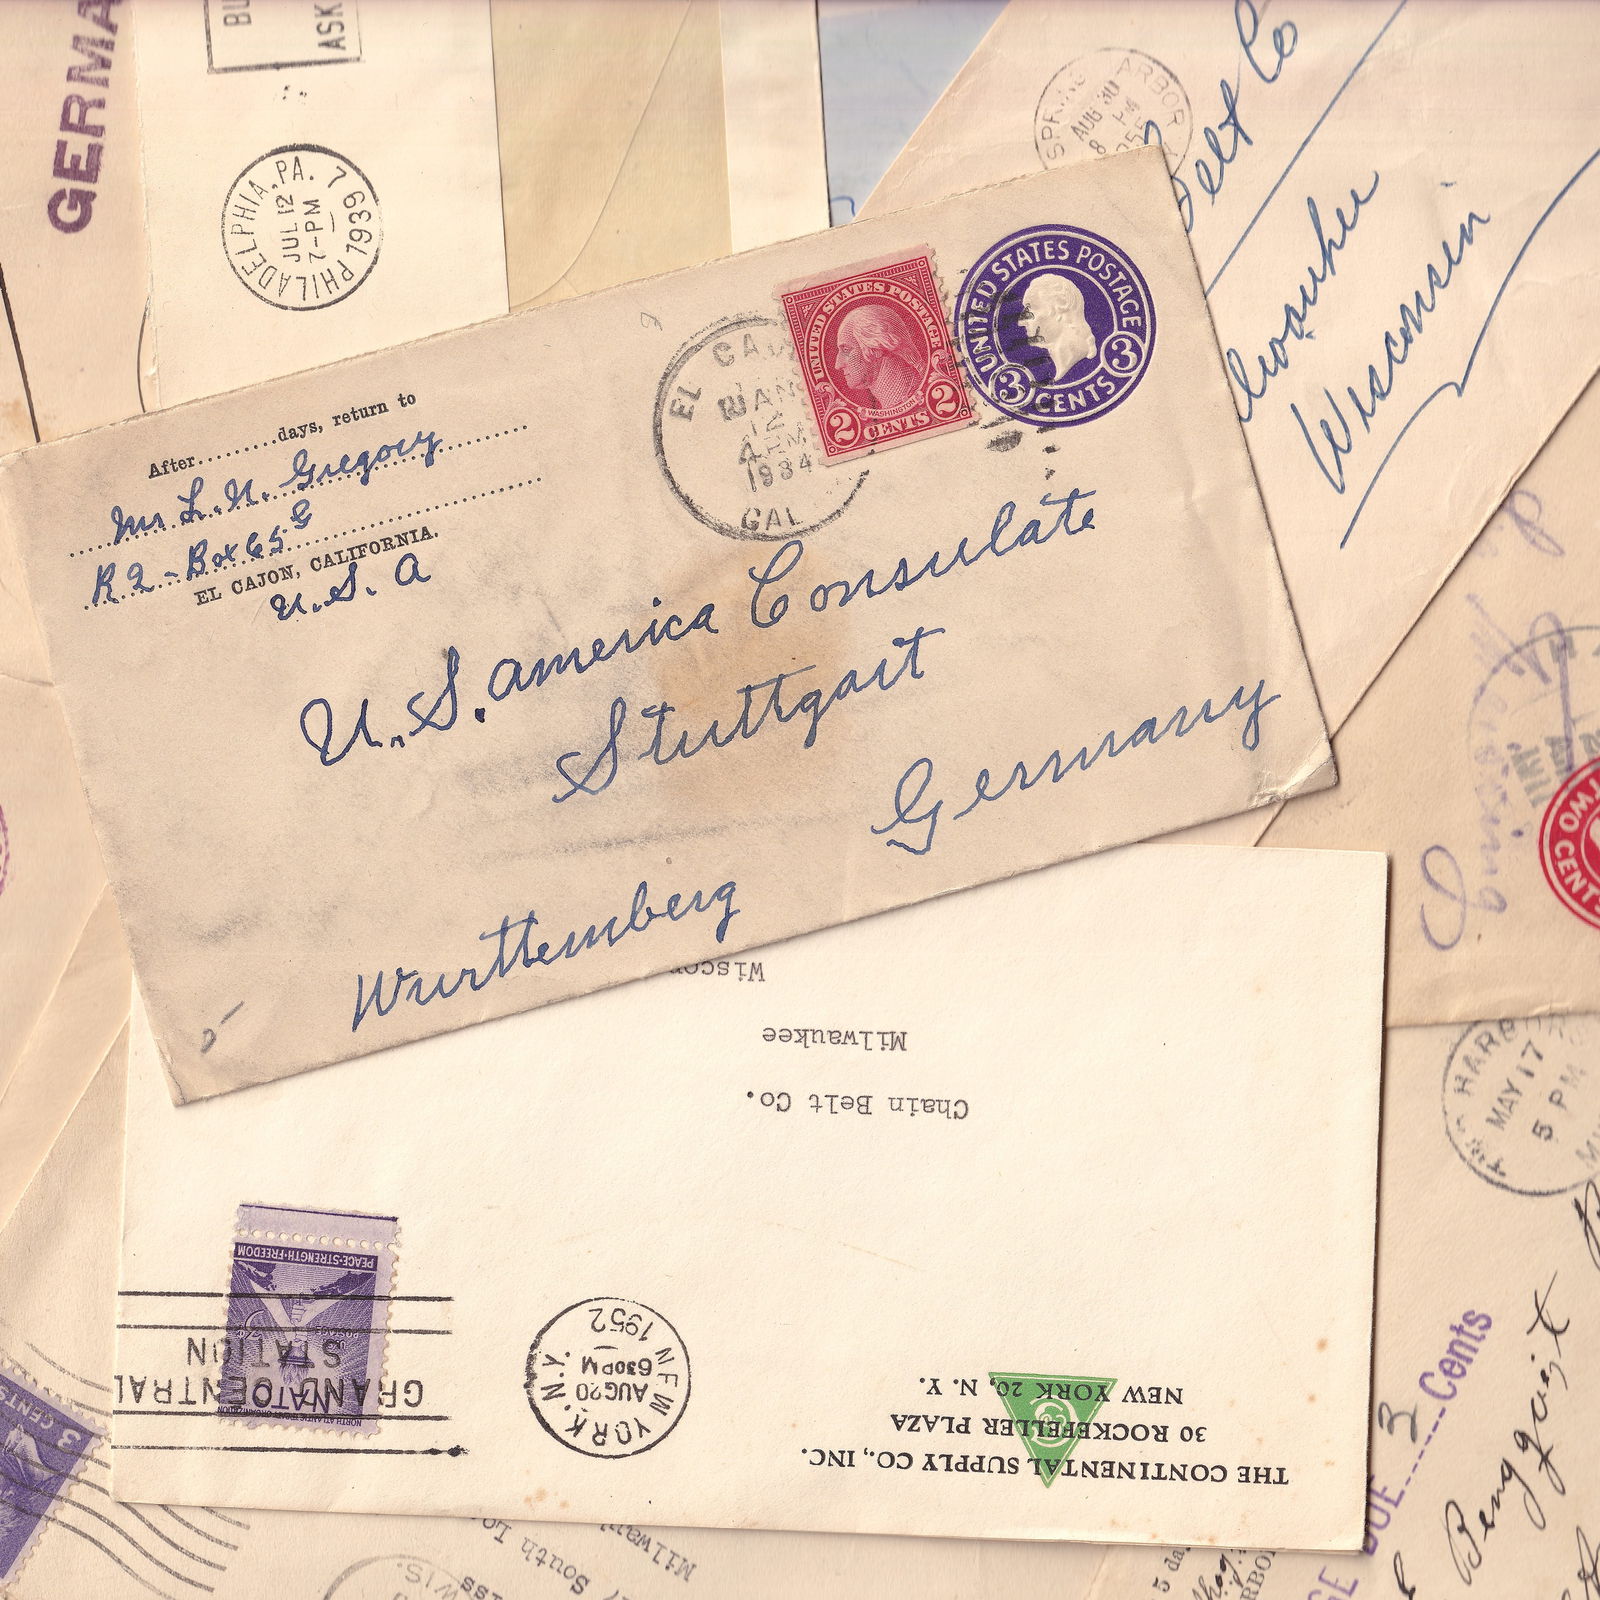 GERMA
BU
ASK
PHILADELPHIA, PA. 7
JUL 12
7-PM
1939
SPRING ARBOR
AUG 30
8 PM
Belt Co
Wisconsin
After..........days, return to
Mr L. N. Gregory
R2 - Box 65 G
EL CAJON, CALIFORNIA.
U. S. A
EL CAJON
JAN
12
4 PM
1934
CAL
UNITED STATES POSTAGE
WASHINGTON
2 CENTS 2
UNITED STATES POSTAGE
3 CENTS 3
U. S. America Consulate
Stuttgart
Germany
Wurttemberg
TWO CENTS
HARB
MAY 17
5 PM
THE CONTINENTAL SUPPLY CO., INC.
30 ROCKEFELLER PLAZA
NEW YORK 20, N. Y.
NEW YORK, N.Y.
AUG 20
630PM
1952
GRAND CENTRAL
STATION
NATO
NORTH ATLANTIC TREATY ORGANIZATION
POSTAGE
PEACE-STRENGTH-FREEDOM
Chain Belt Co.
Milwaukee
Wiscon
3 CENTS
South
WIS.
5 da
DUE 3 Cents
Bengquist